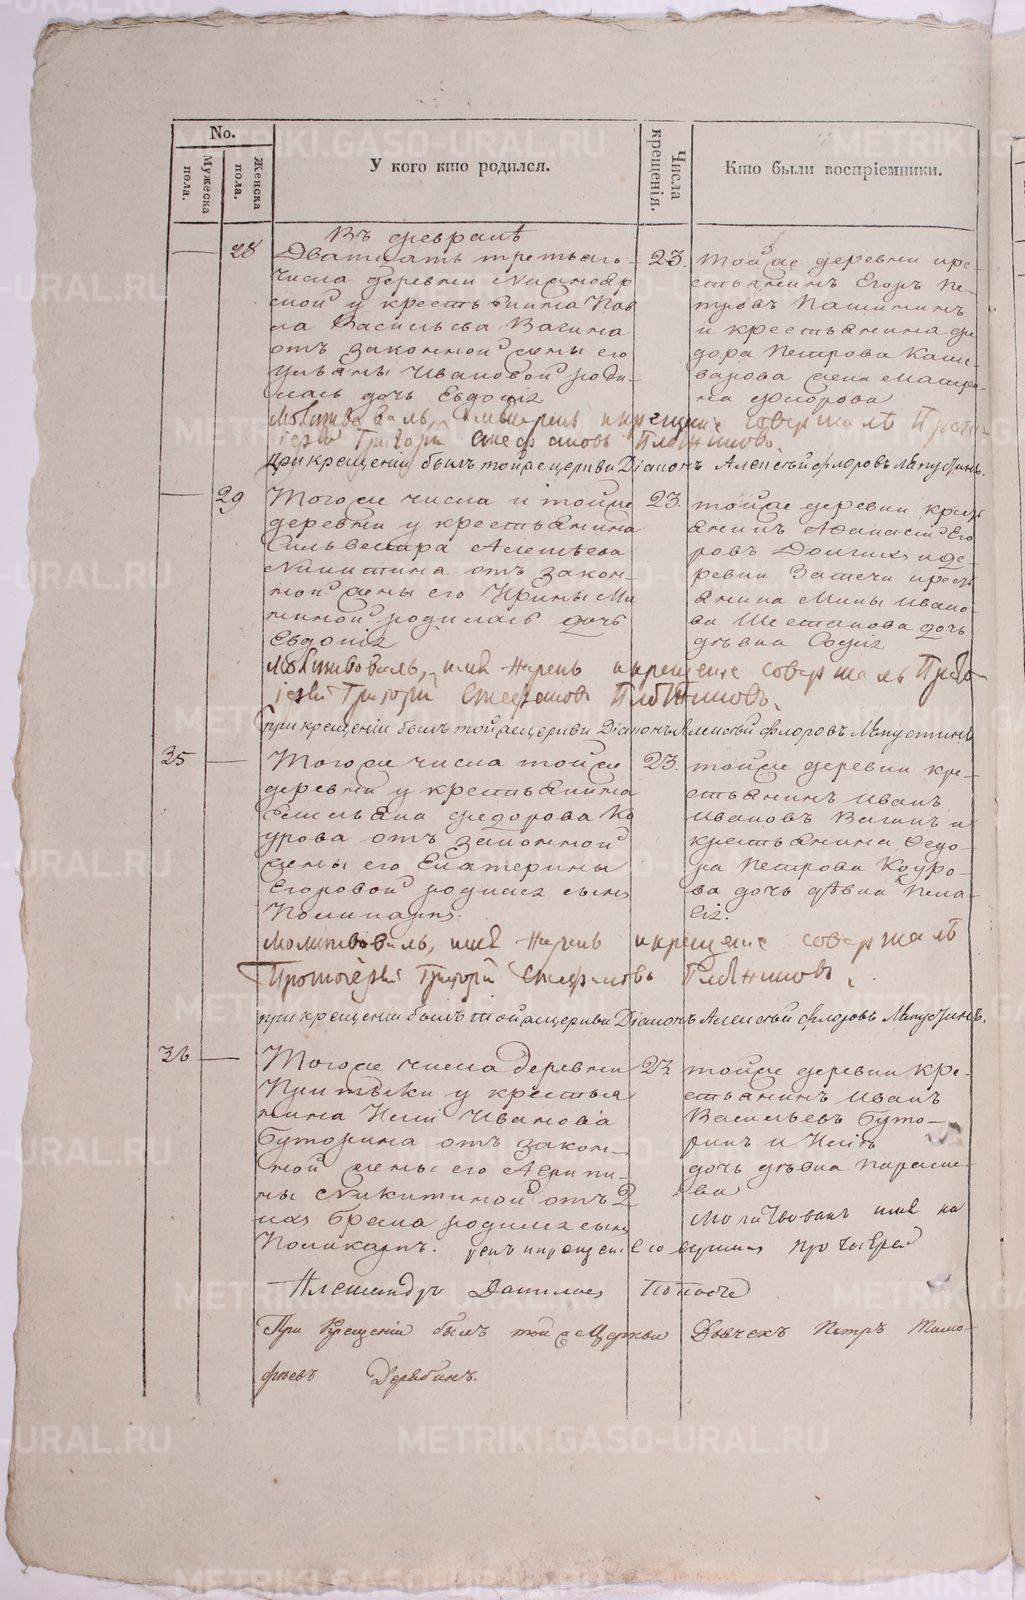 No.
Мужеска пола.
Женска пола.
У кого кто родился.
Числа крещенія.
Кто были воспріемники.
Въ февралѣ
28
Дватцать третьяго
числа деревни
ской у крестьянина Пав
ла Васильева Вагина
отъ законной жены его
Ульяны Ивановой роди
лась дочь Евдокія
23.
тойже деревни кре
стьянинъ Егоръ Пе
тровъ
и крестьянина Фе
дора Петрова Каше
варова жена Матре
на Федорова
Молитвовалъ, имя нарекъ и крещеніе совершалъ Прото
іерей Григорій Стефановъ Плотниковъ.
При крещеніи былъ тойже церкви Діаконъ Алексѣй Флоровъ
29
Тогоже числа и тойже
деревни у крестьянина
Сильвестра Алексѣева
Никитина отъ закон
ной жены его Ирины Ми
ниной родилась дочь
Евдокія
23.
тойже деревни кресть
янинъ Афанасій Его
ровъ Долгихъ и де
ревни Затечи кресть
янина Мины Ивано
ва Шестакова дочь
дѣвка Софія
Молитвовалъ, имя нарекъ и крещеніе совершалъ Прото
іерей Григорій Стефановъ Плотниковъ.
При крещеніи былъ тойже церкви Діаконъ Алексѣй Флоровъ
35
Тогоже числа тойже
деревни у крестьянина
Емельяна Федорова Ко
урова отъ законной
жены его Екатерины
Егоровой родился сынъ
Поликарпъ.
23.
тойже деревни кре
стьянинъ Иванъ
Ивановъ Вагинъ и
крестьянина Федо
ра Петрова Коуро
ва дочь дѣвка Пела
гія.
Молитвовалъ, имя нарекъ и крещеніе совершалъ
Протоіерей Григорій Стефановъ Плотниковъ.
При крещеніи былъ тойже церкви Діаконъ Алексѣй Флоровъ
36
Тогоже числа деревни
Притыки у крестья
нина Ильи Иванова
Буторина отъ закон
ной жены его Агрипи
ны Никитиной отъ 2
го брака родился сынъ
Поликарпъ.
23
тойже деревни кре
стьянинъ Иванъ
Васильевъ Буто
ринъ и Ильи
дочь дѣвка Параске
ва
Молитвовалъ имя на
рекъ и крещеніе совершилъ протоіерей
Александръ Даниловъ Поповъ
При крещеніи былъ тойже Церкви Дьячекъ Петръ Тимо
феевъ Дерябинъ.
METRIKI.GASO-URAL.RU